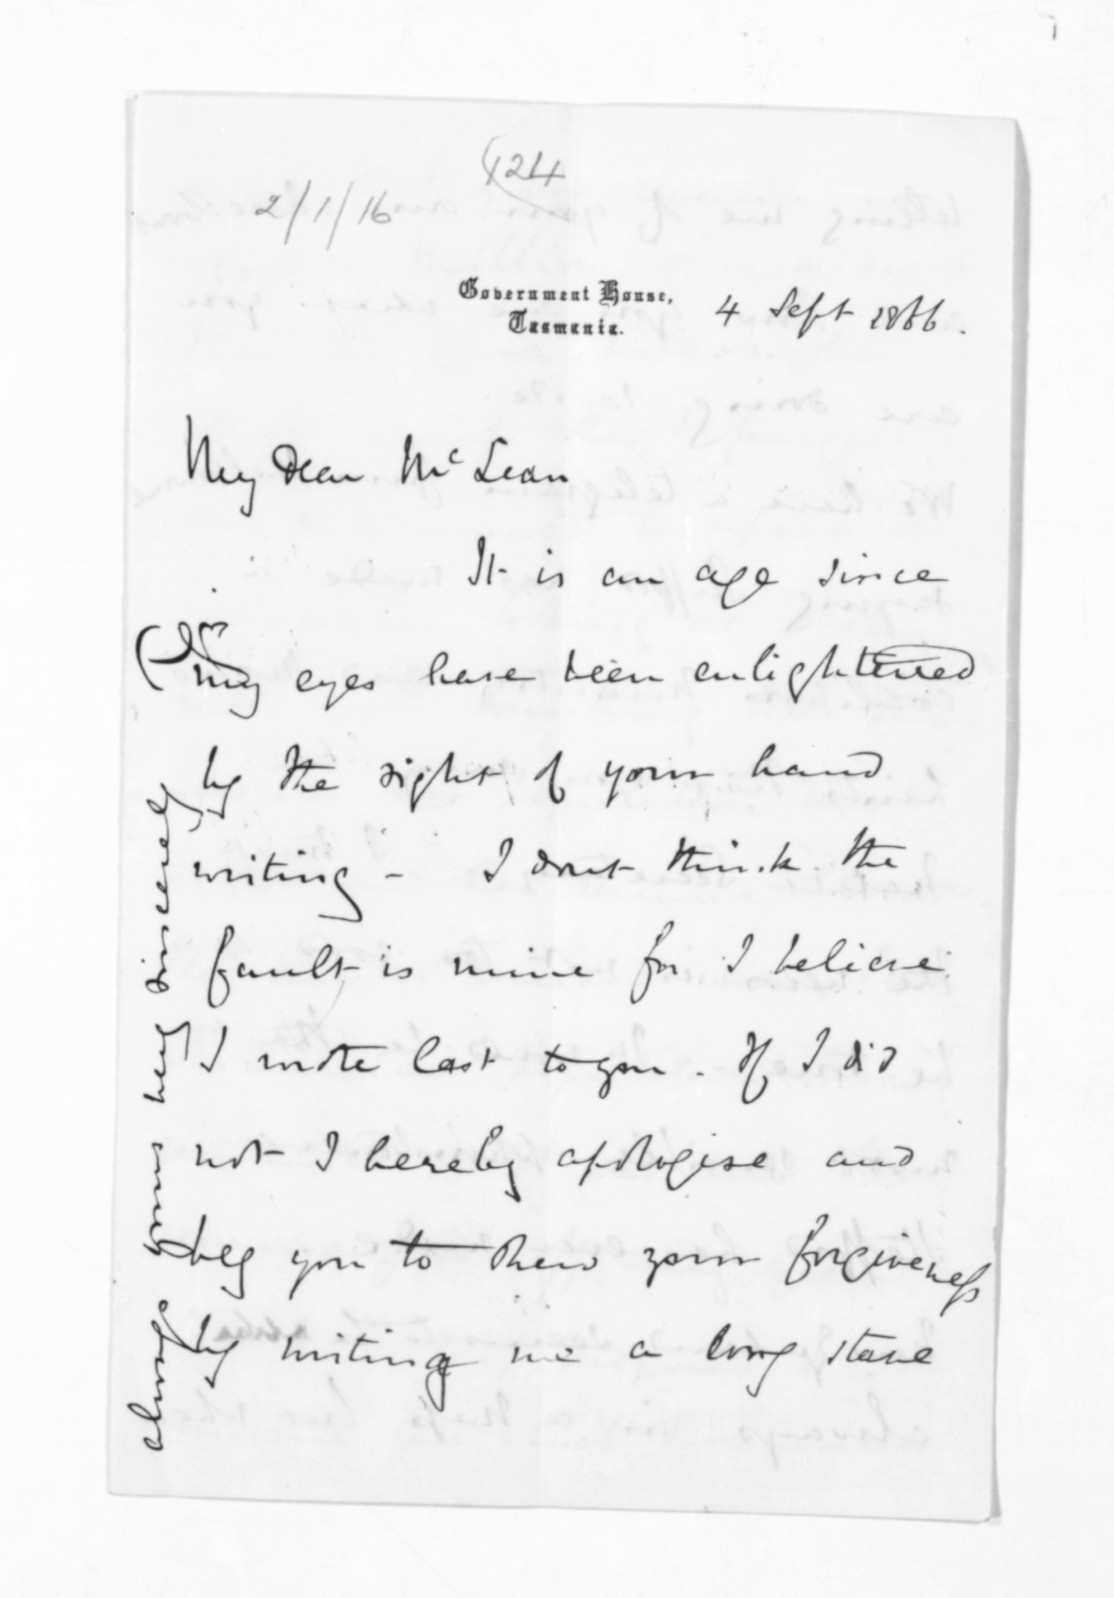 424
2/1/16
Government House,
Tasmania.
4 Sept 1866.
My Dear McLean
It is an age since
my eyes have been enlightened
by the sight of your hand
writing - I dont think the
fault is mine for I believe
I wrote last to you. If I did
not I hereby apologise and
beg you to shew your forgiveness
by writing me a long stave
always yours very sincerely